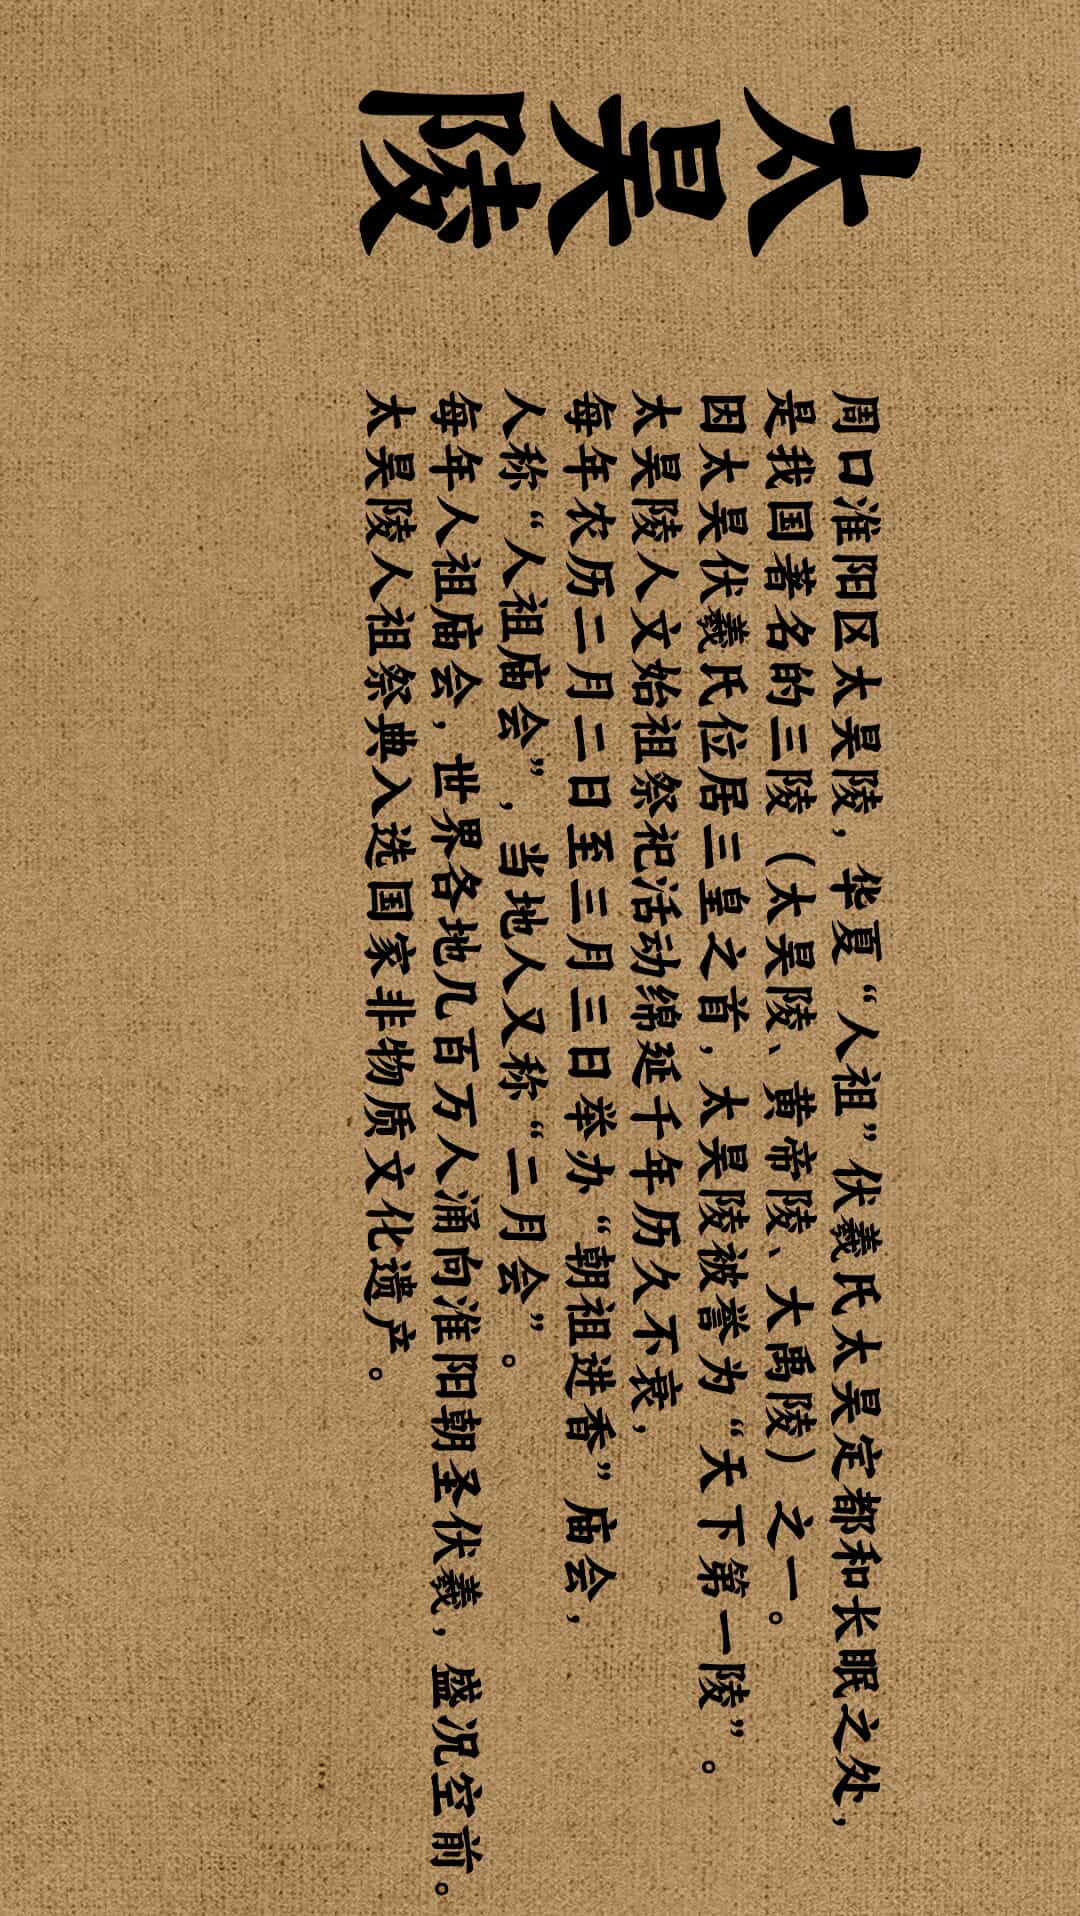 太昊陵
周口淮阳区太昊陵，华夏“人祖”伏羲氏太昊定都和长眠之处，
是我国著名的三陵（太昊陵、黄帝陵、大禹陵）之一。
因太昊伏羲氏位居三皇之首，太昊陵被誉为“天下第一陵”。
太昊陵人文始祖祭祀活动绵延千年历久不衰，
每年农历二月二日至三月三日举办“朝祖进香”庙会，
人称“人祖庙会”，当地人又称“二月会”。
每年人祖庙会，世界各地几百万人涌向淮阳朝圣伏羲，盛况空前。
太昊陵人祖祭典入选国家非物质文化遗产。